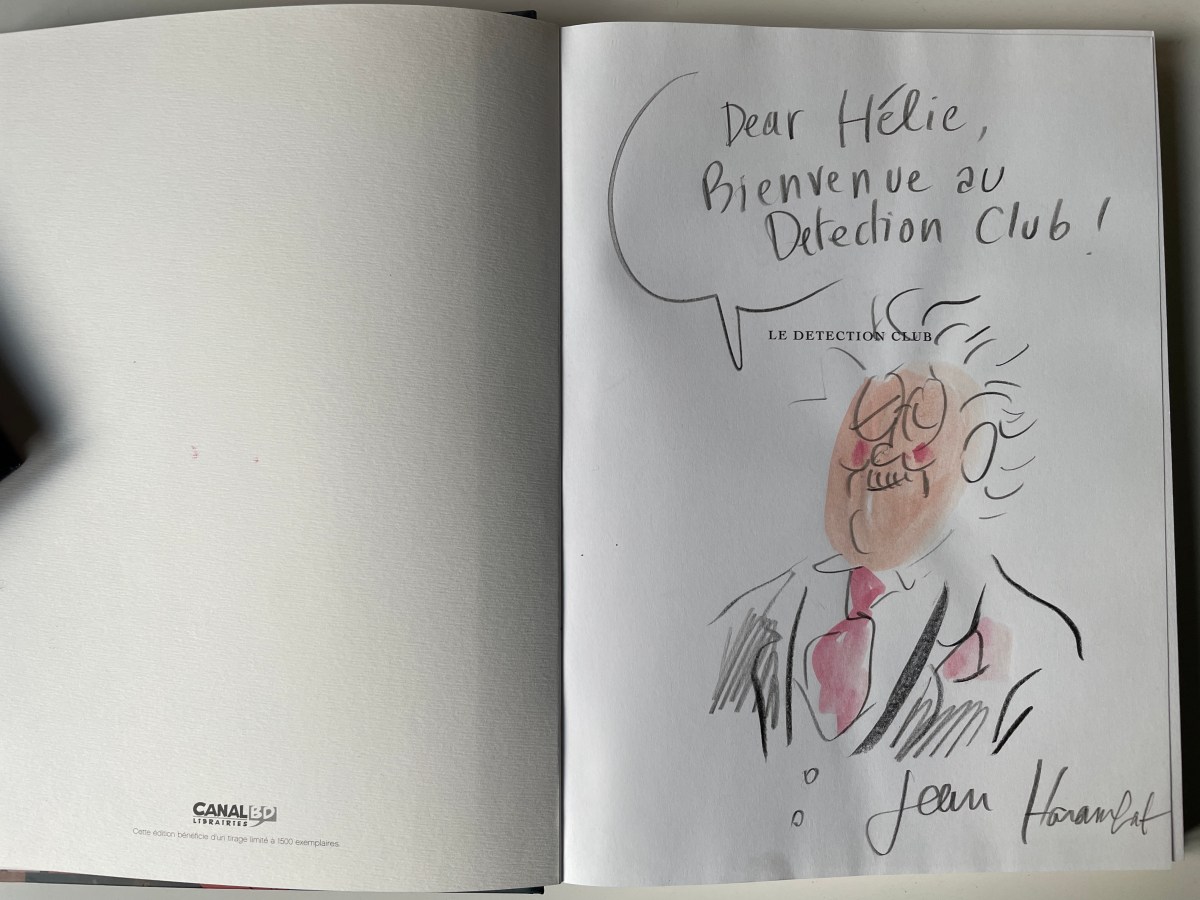 Dear Hélie,
Bienvenue au
Detection Club !
LE DETECTION CLUB
Jean Harambat
CANAL BD
LIBRAIRIES
Cette édition bénéficie d'un tirage limité à 1500 exemplaires.